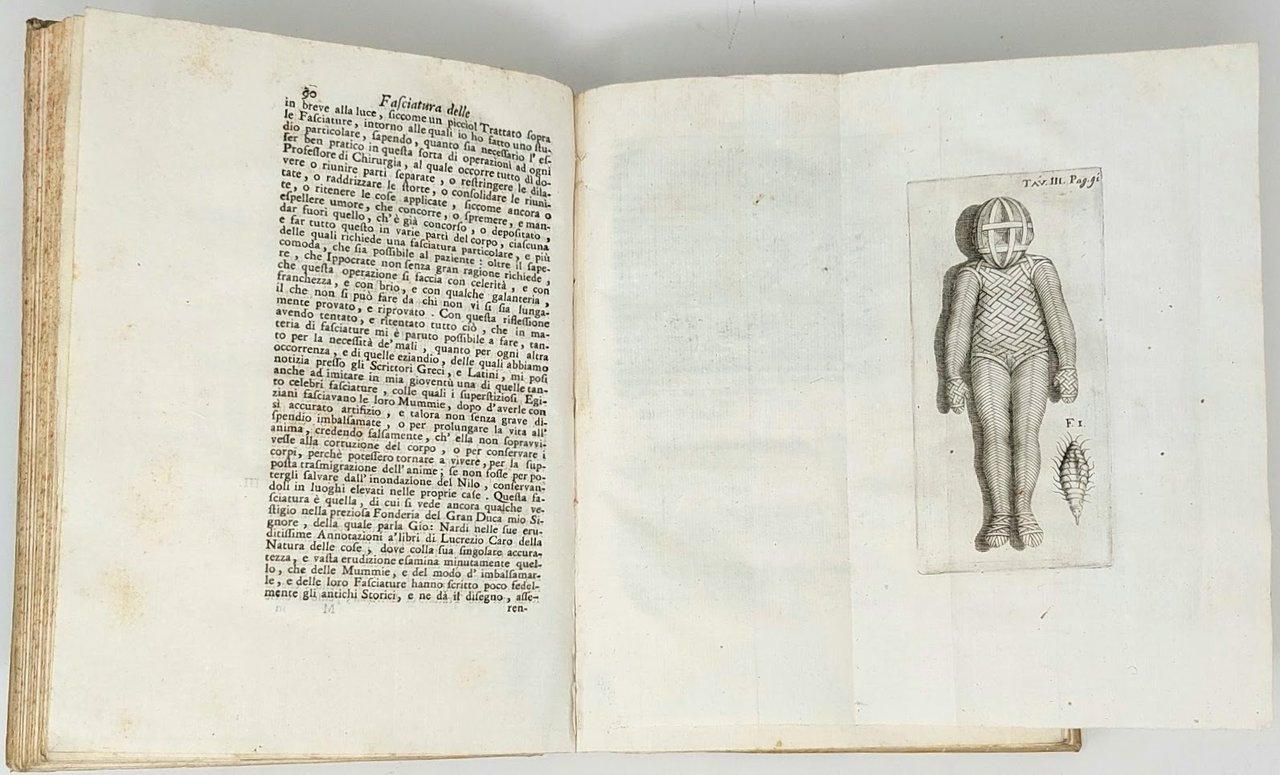 90 Fasciatura delle
in breve alla luce, siccome un picciol Trattato sopra
le Fasciature, intorno alle quali io ho fatto uno stu-
dio particolare, sapendo, quanto sia necessario l'es-
ser ben pratico in questa sorta di operazioni ad ogni
Professore di Chirurgia, al quale occorre tutto dì do-
vere o riunire parti separate, o restringere le dila-
tate, o raddrizzare le storte, o consolidare le riuni-
te, o ritenere le cose applicate, siccome ancora o
espellere umore, che concorre, o spremere, e man-
dar fuori quello, ch'è già concorso, o depositato,
e far tutto questo in varie parti del corpo, ciascuna
delle quali richiede una fasciatura particolare, e più
comoda, che sia possibile al paziente: oltre il sape-
re, che Ippocrate non senza gran ragione richiede,
che questa operazione si faccia con celerità, e con
franchezza, e con brio, e con qualche galanteria,
il che non si può fare da chi non vi si sia lunga-
mente provato, e riprovato. Con questa riflessione
avendo tentato, e ritentato tutto ciò, che in ma-
teria di fasciature mi è paruto possibile a fare, tan-
to per la necessità de' mali, quanto per ogni altra
occorrenza, e di quelle eziandio, delle quali abbiamo
notizia presso gli Scrittori Greci, e Latini, mi posi
anche ad imitare in mia gioventù una di quelle tan-
to celebri fasciature, colle quali i superstiziosi Egi-
ziani fasciavano le loro Mummie, dopo d'averle con
sì accurato artifizio, e talora non senza grave di-
spendio imbalsamate, o per prolungare la vita all'
anima, credendo falsamente, ch'ella non sopravvi-
vesse alla corruzione del corpo, o per conservare i
corpi, perchè potessero tornare a vivere, per la sup-
posta trasmigrazione dell'anime; se non fosse per po-
tergli salvare dall'inondazione del Nilo, conservan-
doli in luoghi elevati nelle proprie case. Questa fa-
sciatura è quella, di cui si vede ancora qualche ve-
stigio nella preziosa Fonderia del Gran Duca mio Si-
gnore, della quale parla Gio: Nardi nelle sue eru-
ditissime Annotazioni a' libri di Lucrezio Caro della
Natura delle cose, dove colla sua singolare accura-
tezza, e vasta erudizione esamina minutamente quel-
lo, che delle Mummie, e del modo d'imbalsamar-
le, e delle loro Fasciature hanno scritto poco fedel-
mente gli antichi Storici, e ne dà il disegno, asse-
ren-
TAV. III. Pag. 91
F. I.